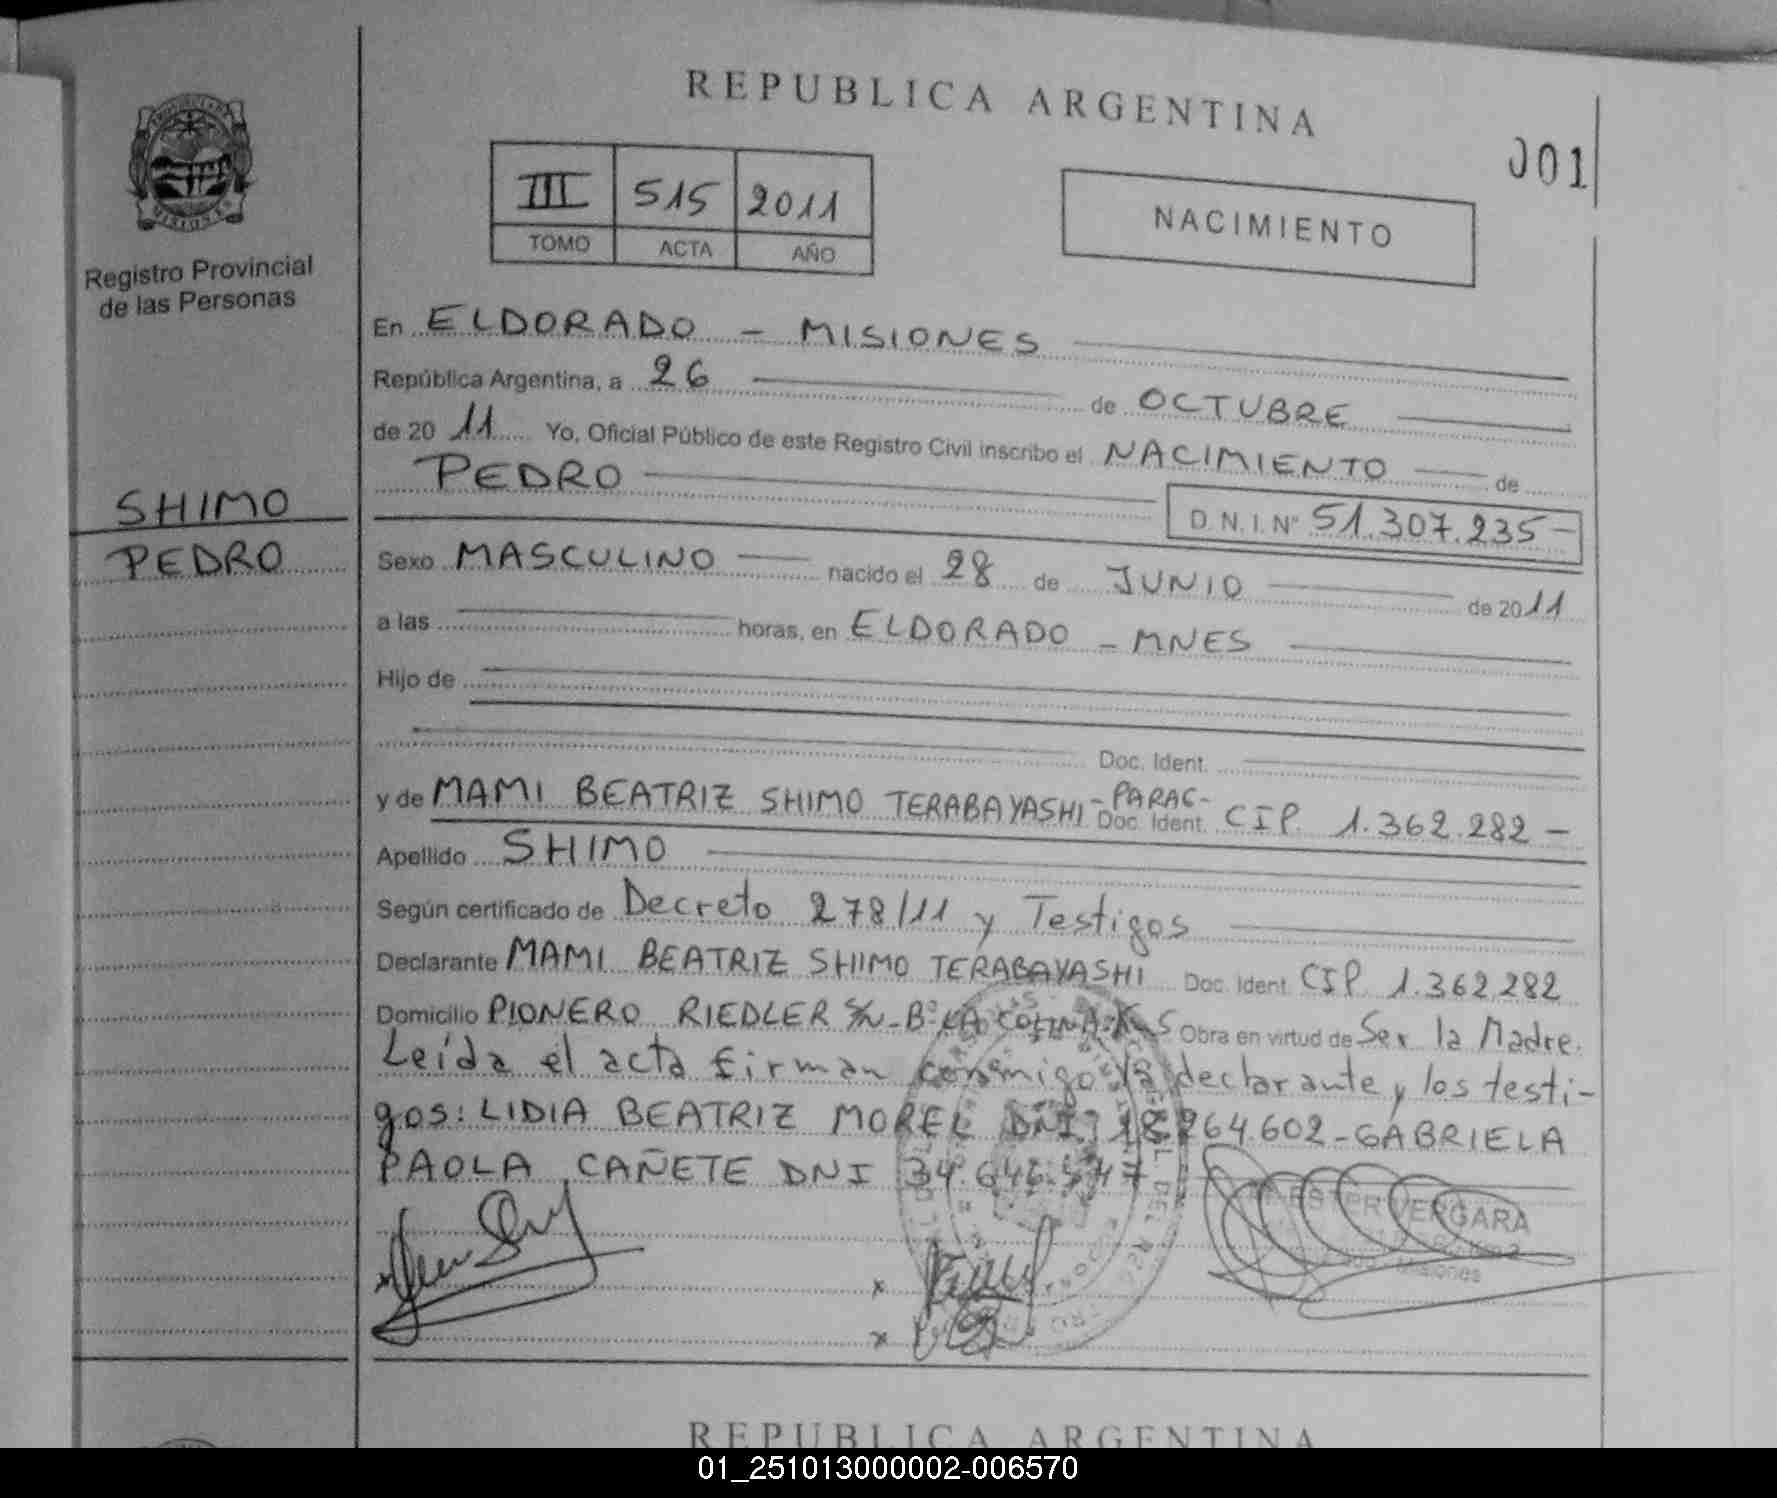 REPUBLICA ARGENTINA
001
III 515 2011
TOMO ACTA AÑO
NACIMIENTO
MISIONES
Registro Provincial
de las Personas
SHIMO
PEDRO
En ELDORADO - MISIONES
República Argentina, a 26 de OCTUBRE
de 2011 Yo, Oficial Público de este Registro Civil inscribo el NACIMIENTO de
PEDRO
D.N.I.N° 51.307.235-
Sexo MASCULINO nacido el 28 de JUNIO de 2011
a las horas, en ELDORADO - MNES
Hijo de
Doc. Ident.
y de MAMI BEATRIZ SHIMO TERABAYASHI -PARAG- Doc. Ident. CIP. 1.362.282 -
Apellido SHIMO
Según certificado de Decreto 278/11 y Testigos
Declarante MAMI BEATRIZ SHIMO TERABAYASHI Doc. Ident. CIP. 1.362.282
Domicilio PIONERO RIEDLER S/N - B° LA COLINA Obra en virtud de Ser la Madre.
Leída el acta firman conmigo la declarante y los testi-
gos: LIDIA BEATRIZ MOREL DNI 264.602 - GABRIELA
PAOLA CAÑETE DNI 34.646.
ESTER VERGARA
Misiones
REPUBLICA ARGENTINA
01_251013000002-006570